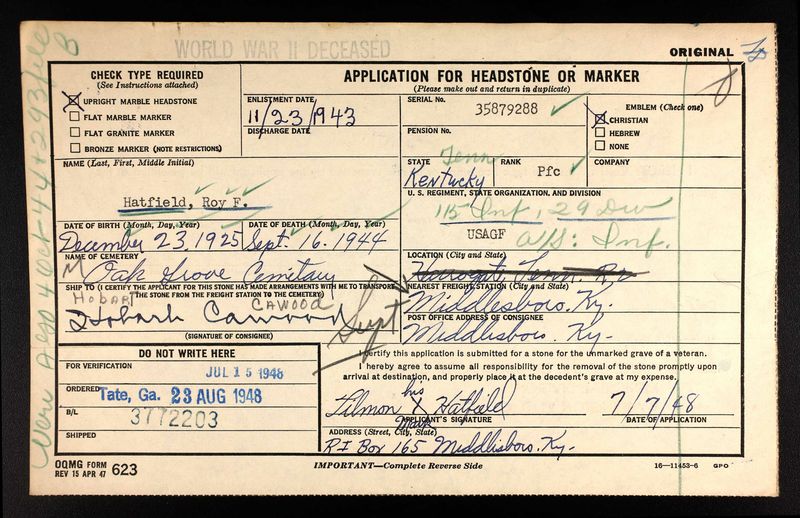 WORLD WAR II DECEASED
ORIGINAL
CHECK TYPE REQUIRED
(See Instructions attached)
UPRIGHT MARBLE HEADSTONE
FLAT MARBLE MARKER
FLAT GRANITE MARKER
BRONZE MARKER (NOTE RESTRICTIONS)
APPLICATION FOR HEADSTONE OR MARKER
(Please make out and return in duplicate)
ENLISTMENT DATE
11/23/1943
DISCHARGE DATE
SERIAL No.
35879288
PENSION No.
EMBLEM (Check one)
CHRISTIAN
HEBREW
NONE
STATE
Tenn
Kentucky
RANK
Pfc
COMPANY
NAME (Last, First, Middle Initial)
Hatfield, Roy F.
U. S. REGIMENT, STATE ORGANIZATION, AND DIVISION
115 Inf, 29 Div
USAGF
A/S: Inf.
DATE OF BIRTH (Month, Day, Year)
December 23, 1925
DATE OF DEATH (Month, Day, Year)
Sept. 16, 1944
NAME OF CEMETERY
Oak Grove Cemetary
LOCATION (City and State)
SHIP TO (I CERTIFY THE APPLICANT FOR THIS STONE HAS MADE ARRANGEMENTS WITH ME TO TRANSPORT
THE STONE FROM THE FREIGHT STATION TO THE CEMETERY)
HOBART CAWOOD
Hobart Cawood
Supt
(SIGNATURE OF CONSIGNEE)
NEAREST FREIGHT STATION (City and State)
Middlesboro, Ky.
POST OFFICE ADDRESS OF CONSIGNEE
Middlesboro. Ky-
DO NOT WRITE HERE
FOR VERIFICATION
JUL 15 1948
ORDERED
Tate, Ga. 23 AUG 1948
B/L
3772203
SHIPPED
I certify this application is submitted for a stone for the unmarked grave of a veteran.
I hereby agree to assume all responsibility for the removal of the stone promptly upon
arrival at destination, and properly place it at the decedent's grave at my expense.
his
Tilmon X Hatfield
Mark
7/7/48
APPLICANT'S SIGNATURE
DATE OF APPLICATION
ADDRESS (Street, City, State)
R I Box 165 Middlesboro. Ky-
OQMG FORM
REV 15 APR 47 623
IMPORTANT—Complete Reverse Side
16—11453-6 GPO